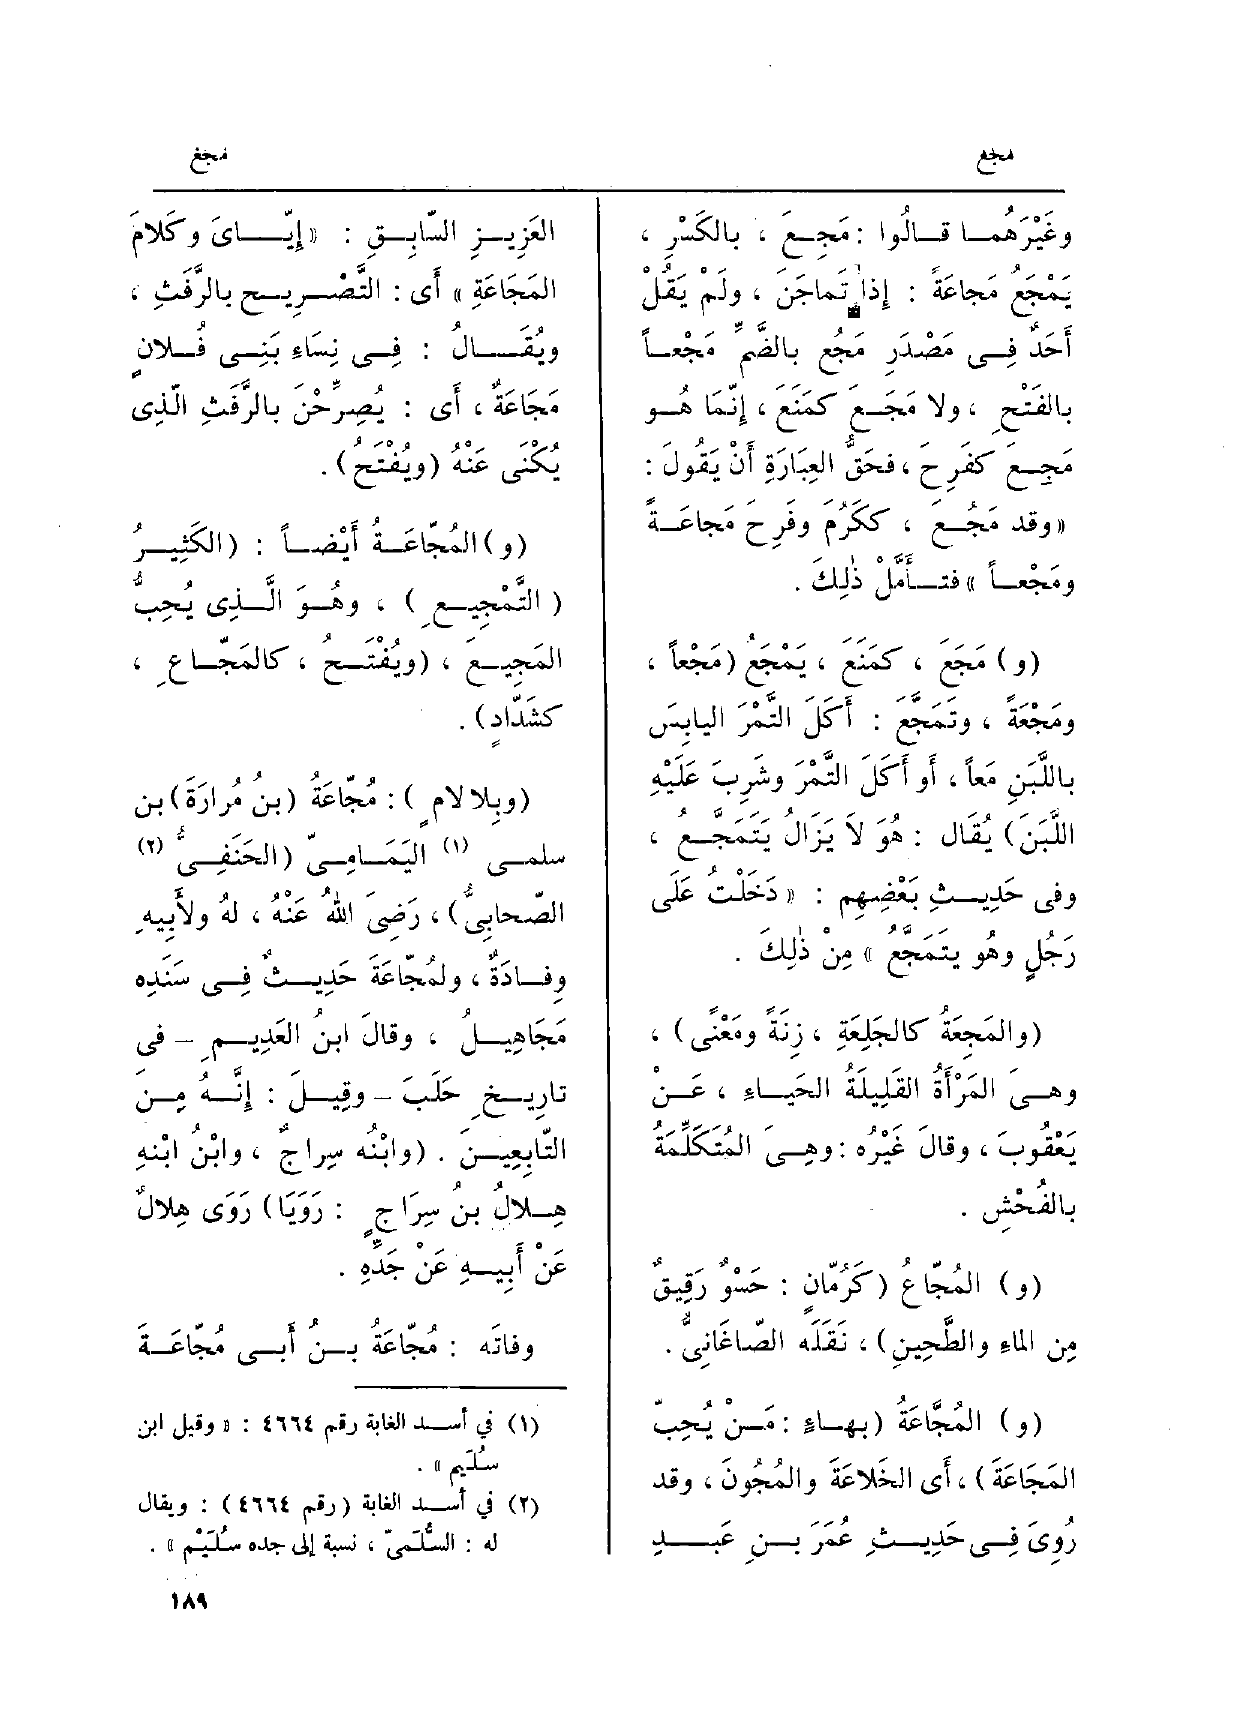 مجع
مجع
وغَيْرَهُما قالُوا : مَجِعَ ، بالكَسْرِ ،
يَمْجَعُ مَجاعَةً : إذا تَماجَنَ ، ولَمْ يَقُلْ
أَحَدٌ فِى مَصْدَرِ مَجُع بالضَّمِّ مَجْعاً
بالفَتْحِ ، ولا مَجَع كمَنَع ، إنَّمَا هُو
مَجِعَ كفَرِح ، فحَقُّ العِبَارَةِ أَنْ يَقُولَ :
« وقد مَجُعَ ، ككَرُمَ وفَرِحَ مَجاعَةً
ومَجْعاً » فتَأَمَّلْ ذٰلِكَ .
(و) مَجَعَ ، كمَنَعَ ، يَمْجَعُ (مَجْعاً ،
ومَجْعَةً ، وتَمَجَّعَ : أَكَلَ التَّمْرَ اليابِسَ
باللَّبَنِ مَعاً ، أو أَكَلَ التَّمْرَ وشَرِبَ عَلَيْهِ
اللَّبَنَ) يُقَال : هُوَ لاَ يَزالُ يَتَمَجَّعُ ،
وفى حَدِيثِ بَعْضِهِم : « دَخَلْتُ عَلَى
رَجُلٍ وهُو يتَمَجَّعُ » مِنْ ذٰلِكَ .
(والمَجِعَةُ كالجَلِعَةِ ، زِنَةً ومَعْنًى) ،
وهِىَ المَرْأَةُ القَلِيلَةُ الحَياءِ ، عَنْ
يَعْقُوبَ ، وقالَ غَيْرُه : وهِىَ المُتَكَلِّمَةُ
بالفُحْشِ .
(و) المُجّاعُ (كَرُمّانٍ : حَسْوٌ رَقِيقٌ
مِن الماءِ والطَّحِينِ) ، نَقَلَه الصّاغَانِىُّ .
(و) المُجَّاعَةُ (بهاءٍ : مَنْ يُحِبّ
المَجَاعَةَ) ، أَى الخَلاعَةَ والمُجُونَ ، وقد
رُوِىَ فِى حَدِيثِ عُمَرَ بنِ عَبدِ
العَزِيزِ السّابِقِ : « إيّاىَ وكَلامَ
المَجَاعَةِ » أَى : التَّصْرِيح بالرَّفَثِ ،
ويُقَالُ : فِى نِسَاءِ بَنِى فُلانٍ
مَجَاعَةٌ ، أَى : يُصَرِّحْنَ بالرَّفَثِ الّذِى
يُكْنَى عَنْهُ (ويُفْتَح) .
(و) المُجّاعَةُ أَيْضاً : (الكَثِيرُ
(التَّمْجِيعِ) ، وهُوَ الَّذِى يُحِبُّ
المَجِيعَ ، (ويُفْتَح ، كالمَجّاعِ ،
كشَدَّادٍ) .
(وبِلا لامٍ) : مُجّاعَةُ (بن مُرارَةَ) بن
سلمى (١) اليَمَامِىّ (الحَنَفِىُّ (٢)
الصّحابِىُّ) ، رَضِىَ اللهُ عَنْهُ ، لَهُ ولأَبِيهِ
وِفَادَةٌ ، ولمُجّاعَةَ حَدِيثٌ فِى سَنَدِه
مَجَاهِيلُ ، وقالَ ابنُ العَدِيمِ - فى
تارِيخِ حَلَبَ - وقِيلَ : إِنَّهُ مِن
التّابِعِينَ . (وابْنُه سِراجٌ ، وابْنُ ابْنِهِ
هِلالُ بنُ سِرَاجٍ : رَوَيَا) رَوَى هِلالٌ
عَنْ أَبِيهِ عَنْ جَدِّهِ .
وفاتَه : مُجّاعَةُ بنُ أَبى مُجّاعَةَ
(١) في أسد الغابة رقم ٤٦٦٤ : « وقيل ابن
سُلَيم » .
(٢) في أسد الغابة (رقم ٤٦٦٤) : ويقال
له : السُّلَمىّ ، نسبة إلى جده سُلَيْم » .
١٨٩